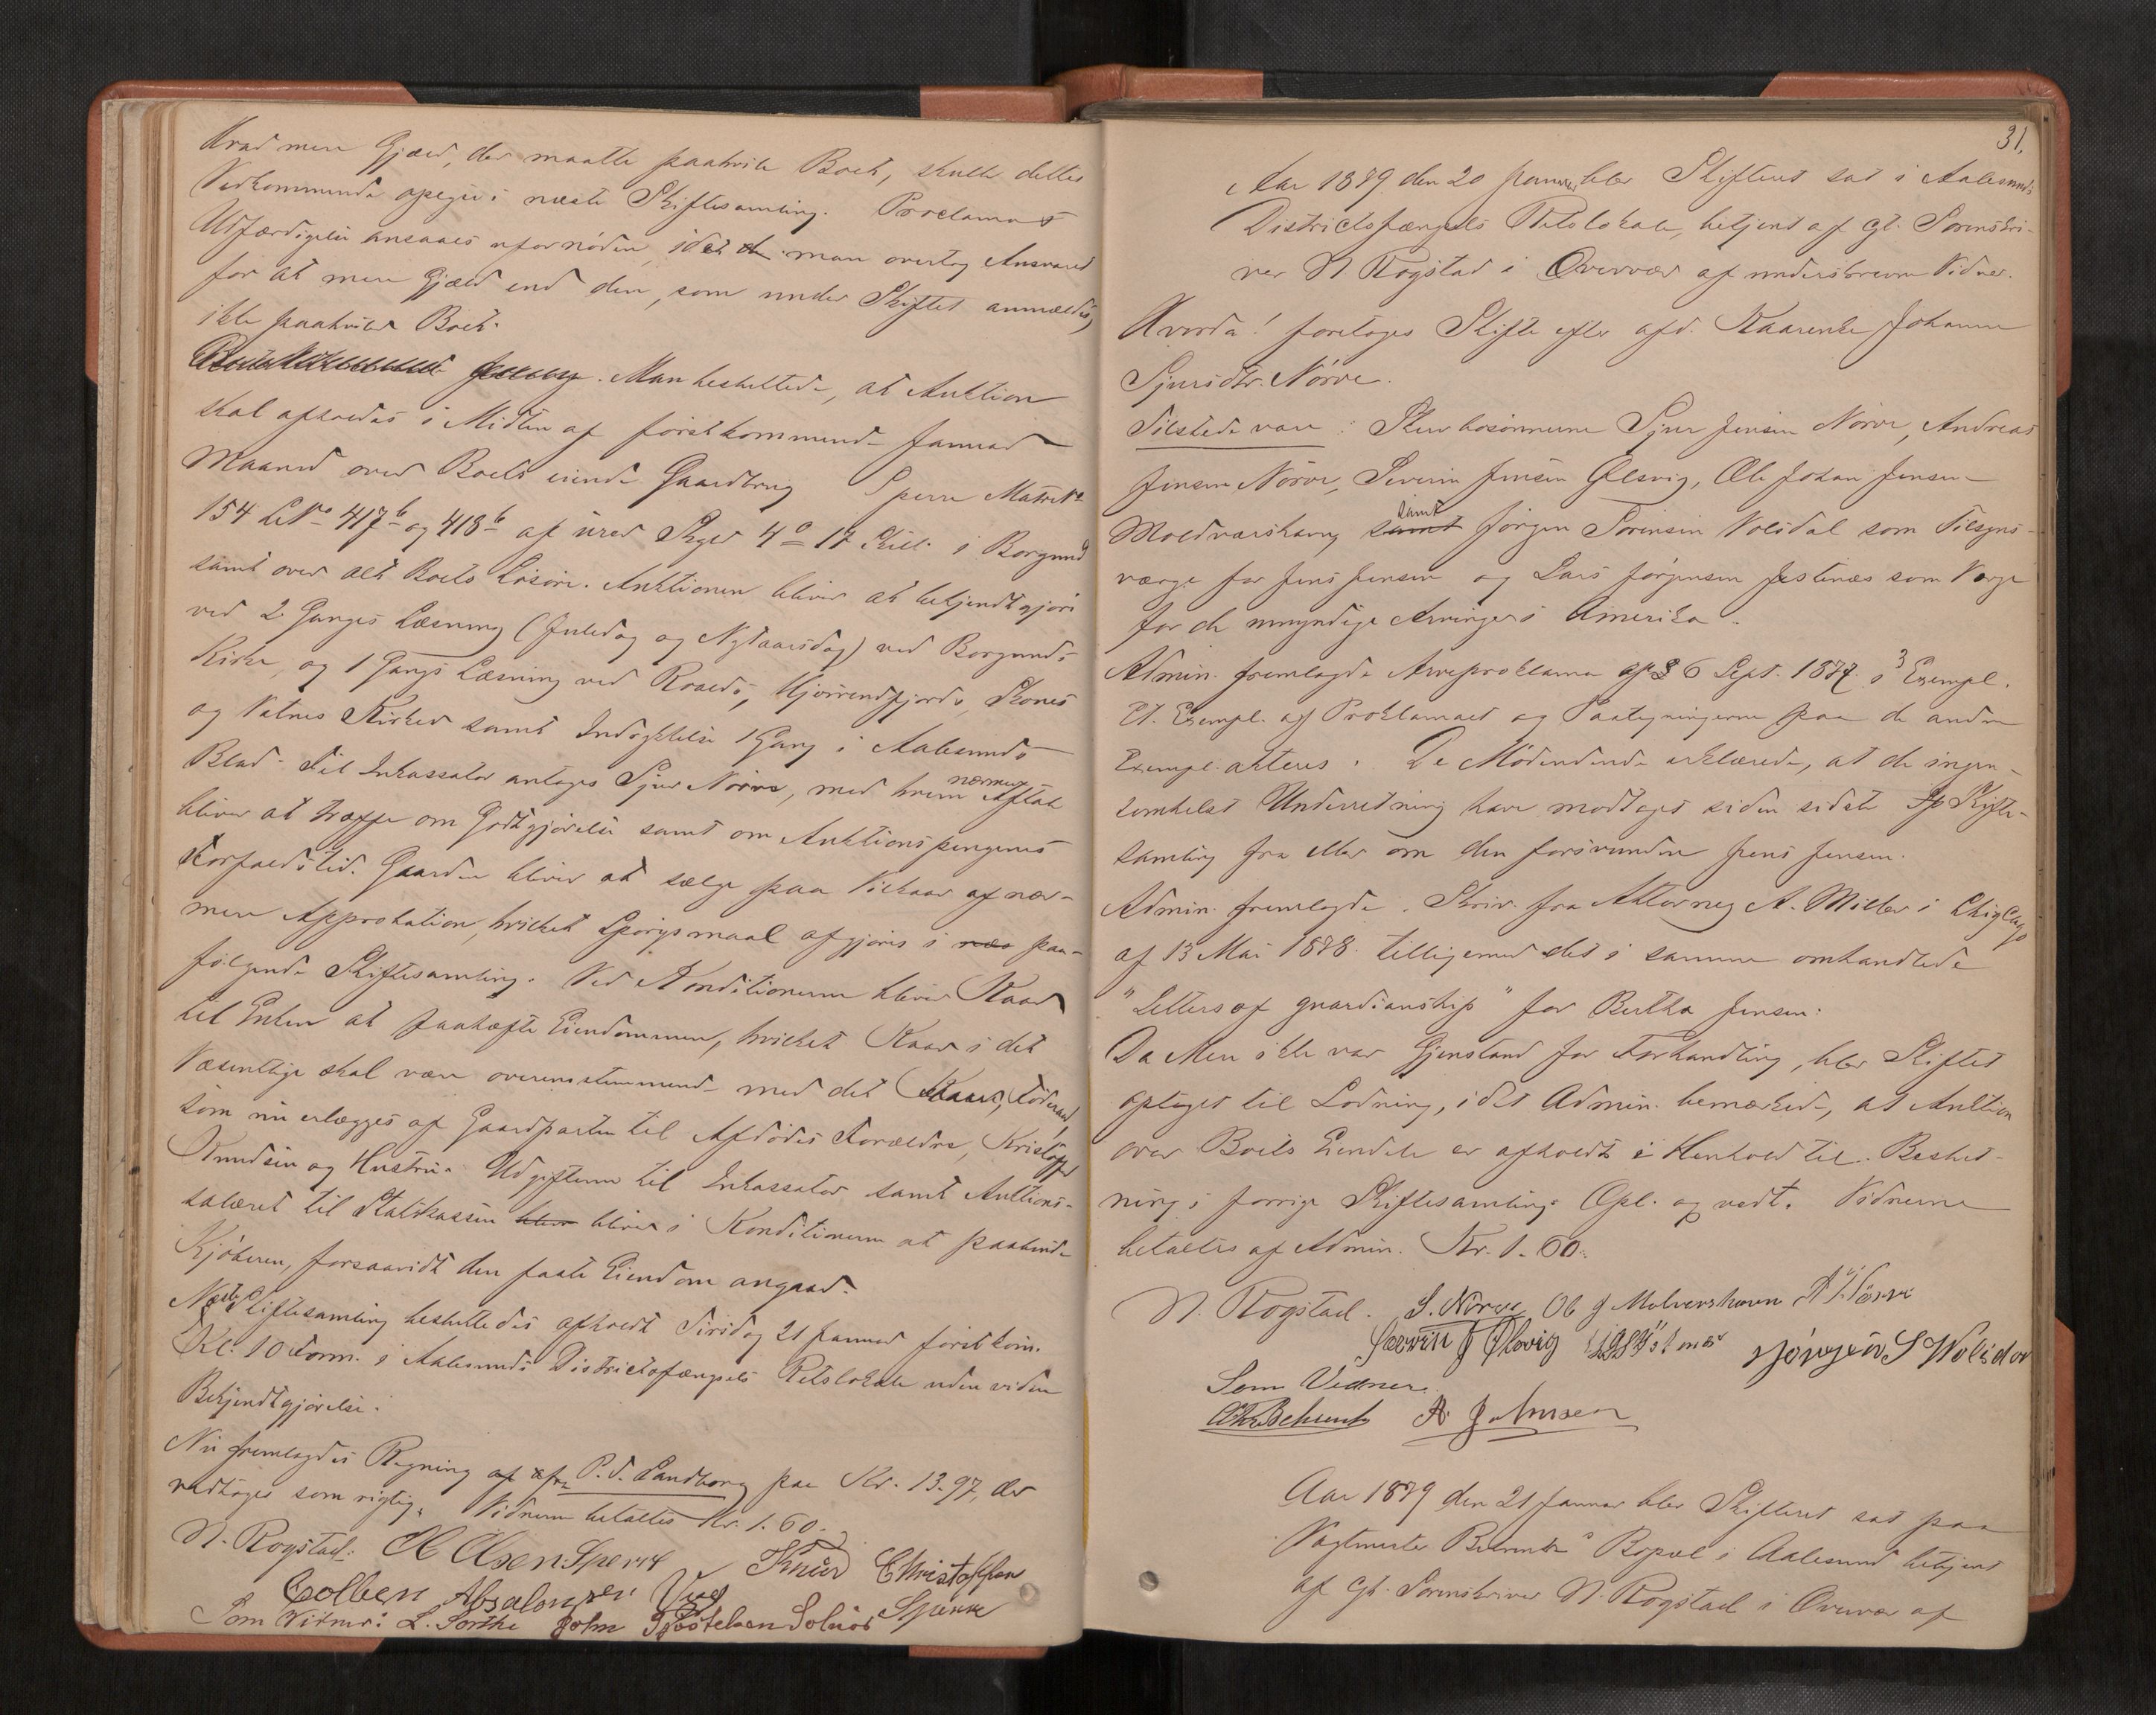 Hvad mere Gjæld, der maatte paahvile Boet, skulle dettes
Vedkommende opgive i næste Skiftesamling. Proclamas
Udfærdigelse ansaaes ufornöden, idet man overtog Ansvaret
for at mere Gjæld end den, som under Skiftet anmældes,
ikke paahviler Boet.
Man besluttede, at Auktion
skal afholdes i Midten af förstkommende Januar
Maaned over Boets eiende Gaardbrug Sperre Matr.N.
154 LNo 417b og 418b af urev. Skyld 4 o 17 Skill. i Borgund
samt over alt Boets Lösöre. Auktionen bliver at bekjendtgjöre
ved 2 Ganges Læsning (Juledag og Nytaarsdag) ved Borgunds
Kirke, og 1 Gangs Læsning ved Roalds, Hjörrendfjords, Skones
og Vatnes Kirker samt Indrykkelse 1 Gang i Aalesunds
Blad. Til Inkassator antages Sjur Nörve, med hvem nærmere Aftale
bliver at træffe om Godtgjörelse samt om Auktionspengenes
Forfaldstid. Gaarden bliver at sælge paa Vilkaar af nær-
mere Approbation, hvilket Spörgsmaal afgjöres i næs paa-
fölgende Skiftesamling. Ved Konditionerne bliver Kaar
til Enken at paahæfte Eiendommen, hvilket Kaar i det
Væsentlige skal være overensstemmende med det Kaar, Föderaad,
som nu erlægges af Gaardparten til Afdödes Forældre, Kristoffer
Knudsen og Hustru. Udgifterne til Inkassator samt Auktions-
salæret til Statskassen bliver bliver i Konditionerne at paabinde
Kjöberen, forsaavidt den faste Eiendom angaar.
Næste Skiftesamling besluttedes afholdt Tirsdag 21 Januar förstkom.
Kl. 10 Form. i Aalesunds Districtsfængsels Retslokale uden viden
Bekjendtgjörelse.
Nu fremlagdes Regning af fra P. d. Sandborg paa Kr. 13.97, der
vedtoges som rigtig. Vidnerne betaltes Kr. 1.60.
N. Rogstad. Olsen Sperre Knud Christoffersen
Colben Absalonsen Sperre
Som Vidner: L. Sorthe John Solnör
31.
Aar 1879 den 20 Januar blev Skifteret sat i Aalesunds
Districtsfængsels Retslokale, betjent af cst. Sorenskri-
ver N. Rogstad i Overvær af underskrevne Vidner.
Hvorda! foretoges Skifte efter afd. Kaarenke Johanne
Sjursdtr. Nörve.
Tilstede vare: Stervbosönnerne Sjur Jensen Nörve, Andreas
Jensen Nörve, Severin Jensen Ölsvig, Ole Johan Jensen
Moldværshavn samt samt Jörgen Sörensen Volsdal som Tilsyns-
værge for Jens Jensen og Lars Jörgensen Jestenæs som Værge
for de umyndige Arvinger i Amerika.
Admin. fremlagde Arveproklama af 6 Sept. 1877 i 3 Exempl.
Et Exempl. af Proklamaet og Paategningerne paa de andre
Exempl. akteres. De Mödendende erklærede, at de ingen-
somhelst Underretning have modtaget siden sidste Skifte-
samling fra eller om den forsvundne Jens Jensen.
Admin. fremlagde Skriv. fra Attorney A. Miller i Chicago
af 13 Mai 1878 tilligemed det i samme omhandlede
"Letters of guardianship" for Bertha Jensen.
Da Mere ikke var Gjenstand for Forhandling, blev Skiftet
optaget til Lodning, idet Admin. bemærkede, at Auktion
over Boets Eiendele er afholdt i Henhold til Beslut-
ning i forrige Skiftesamling. Opl. og vedt. Vidnerne
betaltes af Admin. Kr. 1.60.
N. Rogstad. S. Nörve Ole J Molvershavn A J Nörve
Severin J Ølsvig Jörgen S Wolsdal
Som Vidner
A. Johnsen
Aar 1879 den 21 Januar blev Skifteret sat paa
Vagtmester Bopæl i Aalesund betjent
af cst. Sorenskriver N. Rogstad i Overvær af